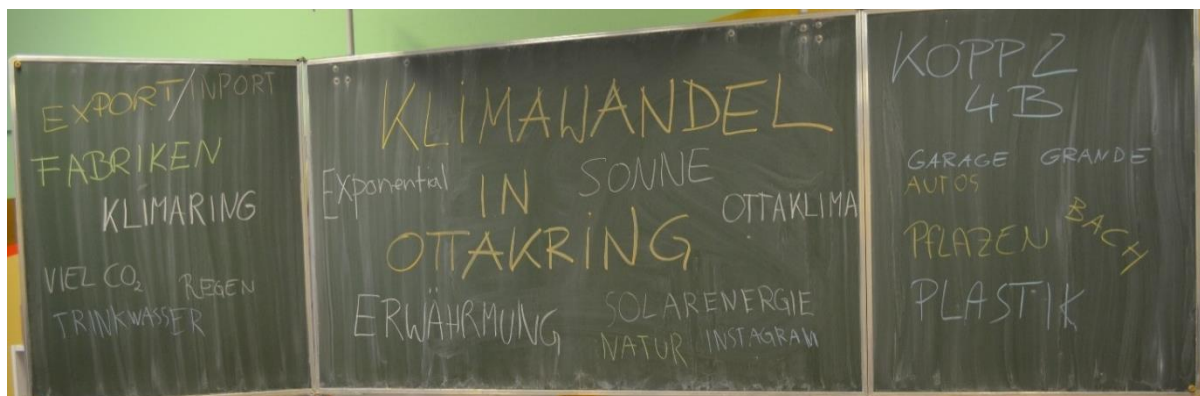 EXPORT/INPORT
FABRIKEN
KLIMARING
VIEL CO₂ REGEN
TRINKWASSER
KLIMAWANDEL
Exponential IN SONNE
OTTAKLIMA
OTTAKRING
ERWÄHRMUNG SOLARENERGIE
NATUR INSTAGRAM
KOPP 2
4B
GARAGE GRANDE
AUTOS
PFLAZEN BACH
PLASTIK